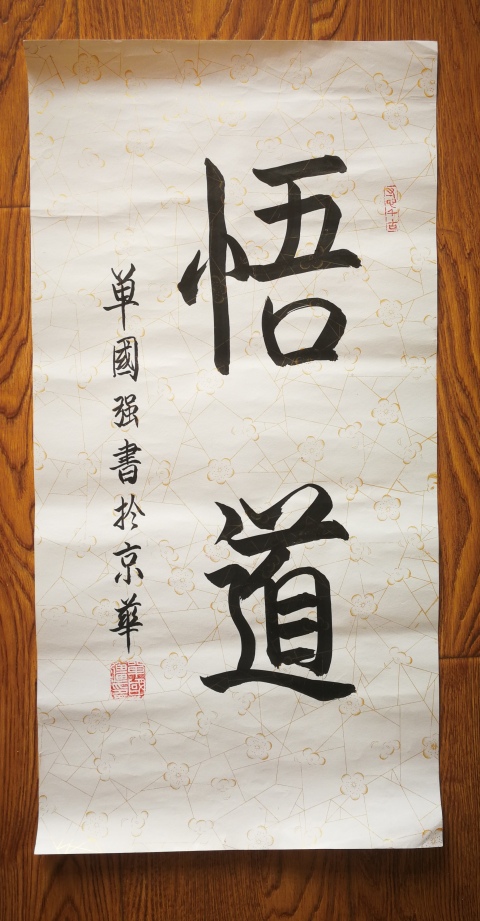 悟道
單國强書於京華